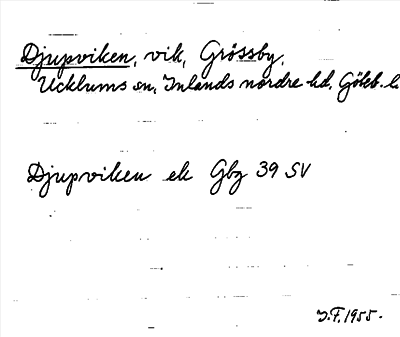 Djupviken, vik, Grössby,
Ucklums sn, Inlands nordre hd, Göteb. l.
Djupviken ek Gbg 39 SV
J.F. 1955.